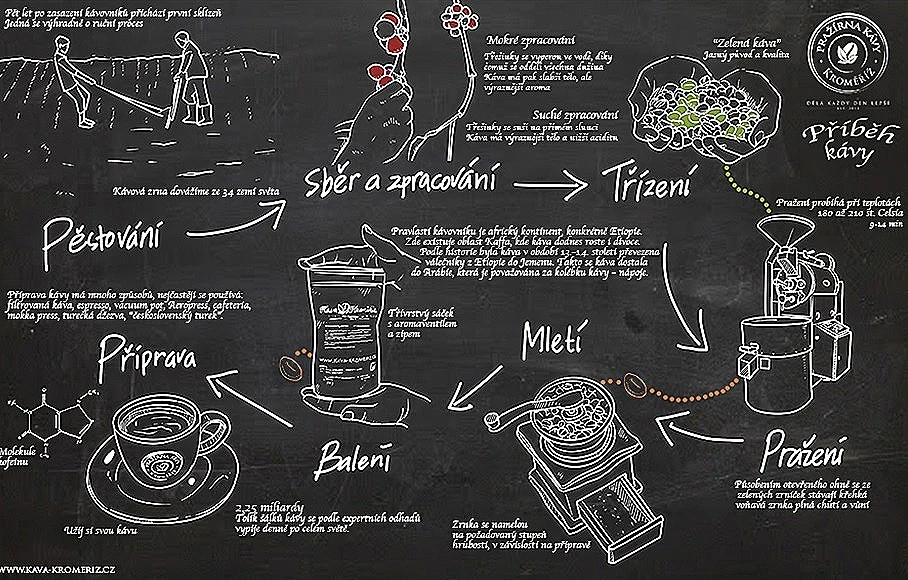 Pět let po zasazení kávovníků přichází první sklizeň
Jedná se výhradně o ruční proces
Mokré zpracování
Třešinky se vyperou ve vodě, díky
čemuž se oddělí všechna dužina
Káva má pak slabší tělo, ale
výraznější aroma
Suché zpracování
Třešinky se suší na přímém slunci
Káva má výraznější tělo a nižší aciditu
"Zelená káva"
Jasný původ a kvalita
PRAŽÍRNA KÁVY
KROMĚŘÍŽ
DĚLÁ KAŽDÝ DEN LEPŠÍ
Příběh
kávy
Kávová zrna dovážíme ze 34 zemí světa
Sběr a zpracování
Třízení
Pěstování
Pravlastí kávovníku je africký kontinent, konkrétně Etiopie.
Zde existuje oblast Kaffa, kde káva dodnes roste i divoce.
Podle historie byla káva v období 13.-14. století převezena
válečníky z Etiopie do Jemenu. Takto se káva dostala
do Arábie, která je považována za kolébku kávy - nápoje.
Pražení probíhá při teplotách
180 až 210 st. Celsia
9-14 min
Příprava kávy má mnoho způsobů, nejčastěji se používá:
filtrovaná káva, espresso, vacuum pot, Aeropress, cafeteria,
mokka press, turecká džezva, "československý turek".
Káva Kroměříž
WWW.KAVA-KROMERIZ.CZ
Třívrstvý sáček
s aromaventilem
a zipem
Mletí
Příprava
Balení
Pražení
Působením otevřeného ohně se ze
zelených zrníček stávají křehká
voňavá zrnka plná chuti a vůní
Molekule
kofeinu
Užij si svou kávu
2,25 miliardy
Tolik šálků kávy se podle expertních odhadů
vypije denně po celém světě.
Zrnka se namelou
na požadovaný stupeň
hrubosti, v závislosti na přípravě
WWW.KAVA-KROMERIZ.CZ